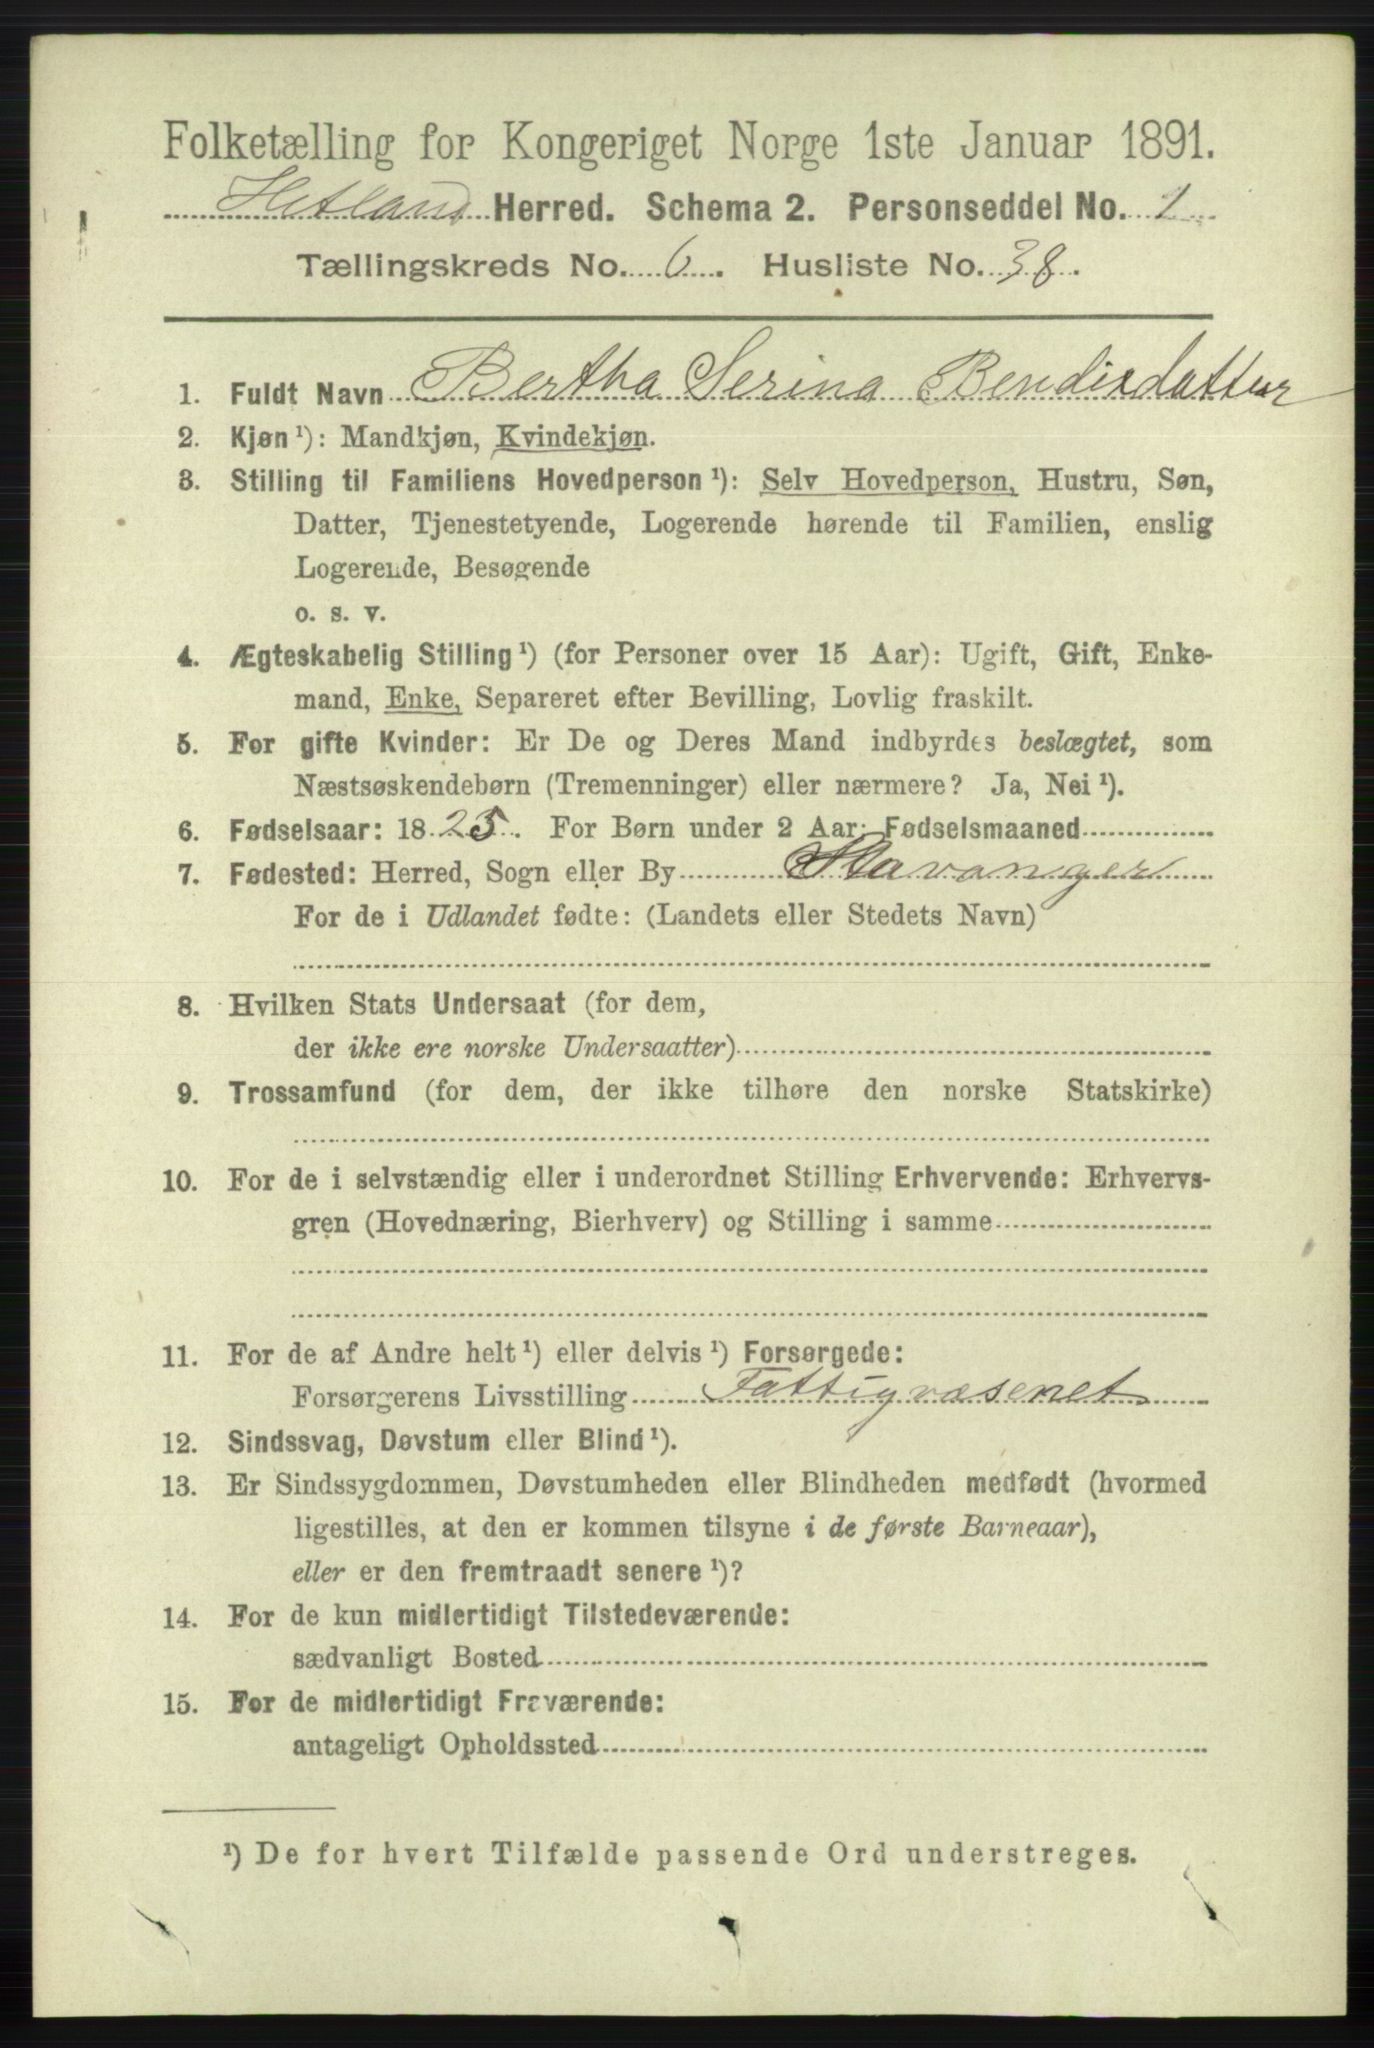 Folketælling for Kongeriget Norge 1ste Januar 1891.
Hetland Herred. Schema 2. Personseddel No. 1
Tællingskreds No. 6. Husliste No. 38.
1. Fuldt Navn Bertha Serina Bendixdatter
2. Kjøn ¹): Mandkjøn, Kvindekjøn.
3. Stilling til Familiens Hovedperson ¹): Selv Hovedperson, Hustru, Søn,
Datter, Tjenestetyende, Logerende hørende til Familien, enslig
Logerende, Besøgende
o. s. v.
4. Ægteskabelig Stilling ¹) (for Personer over 15 Aar): Ugift, Gift, Enke-
mand, Enke, Separeret efter Bevilling, Lovlig fraskilt.
5. For gifte Kvinder: Er De og Deres Mand indbyrdes beslægtet, som
Næstsøskendebørn (Tremenninger) eller nærmere? Ja, Nei ¹).
6. Fødselsaar: 1825. For Børn under 2 Aar: Fødselsmaaned
7. Fødested: Herred, Sogn eller By Stavanger
For de i Udlandet fødte: (Landets eller Stedets Navn)
8. Hvilken Stats Undersaat (for dem,
der ikke ere norske Undersaatter)
9. Trossamfund (for dem, der ikke tilhøre den norske Statskirke)
10. For de i selvstændig eller i underordnet Stilling Erhvervende: Erhvervs-
gren (Hovednæring, Bierhverv) og Stilling i samme
11. For de af Andre helt ¹) eller delvis ¹) Forsørgede:
Forsørgerens Livsstilling Fattigvæsenet
12. Sindssvag, Døvstum eller Blind ¹).
13. Er Sindssygdommen, Døvstumheden eller Blindheden medfødt (hvormed
ligestilles, at den er kommen tilsyne i de første Barneaar),
eller er den fremtraadt senere ¹)?
14. For de kun midlertidigt Tilstedeværende:
sædvanligt Bosted
15. For de midlertidigt Fraværende:
antageligt Opholdssted
¹) De for hvert Tilfælde passende Ord understreges.